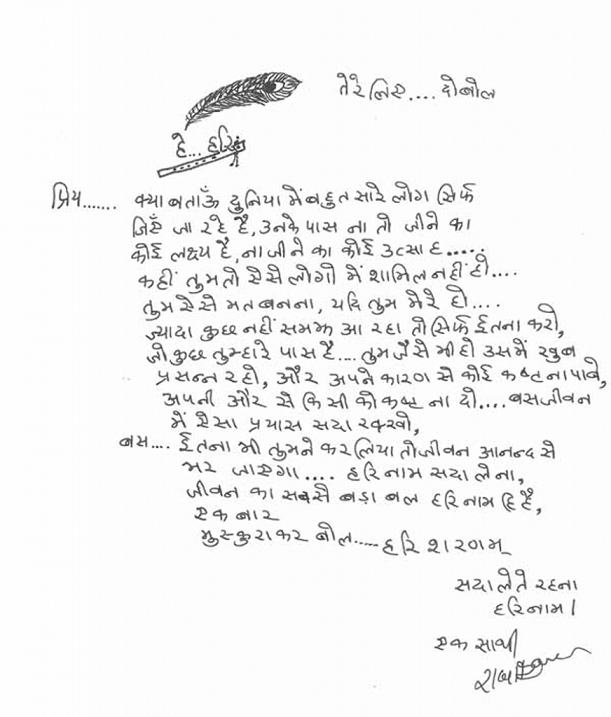 तेरे लिए.... दो बोल
हे... हरि
प्रिय....... क्या बताऊँ दुनिया में बहुत सारे लोग सिर्फ
जिएँ जा रहे है, उनके पास ना तो जीने का
कोई लक्ष्य है, ना जीने का कोई उत्साह.....
कहीं तुम तो ऐसे लोगो में शामिल नहीं हो....
तुम ऐसे मत बनना, यदि तुम मेरे हो....
ज्यादा कुछ नहीं समझ आ रहा तो सिर्फ ईतना करो,
जो कुछ तुम्हारे पास है.... तुम जैसे भी हो उसमें खुब
प्रसन्न रहो, और अपने कारण से कोई कष्ट ना पावे,
अपनी और से किसी को कष्ट ना दो.... बस जीवन
में ऐसा प्रयास सदा रक्खो,
बस.... ईतना भी तुमने कर लिया तो जीवन आनन्द से
भर जाएगा.... हरि नाम सदा लेना,
जीवन का सबसे बड़ा बल हरि नाम हि है,
एक बार
मुस्कुराकर बोल..... हरि शरणम्
सदा लेते रहना
हरि नाम।
एक साथी